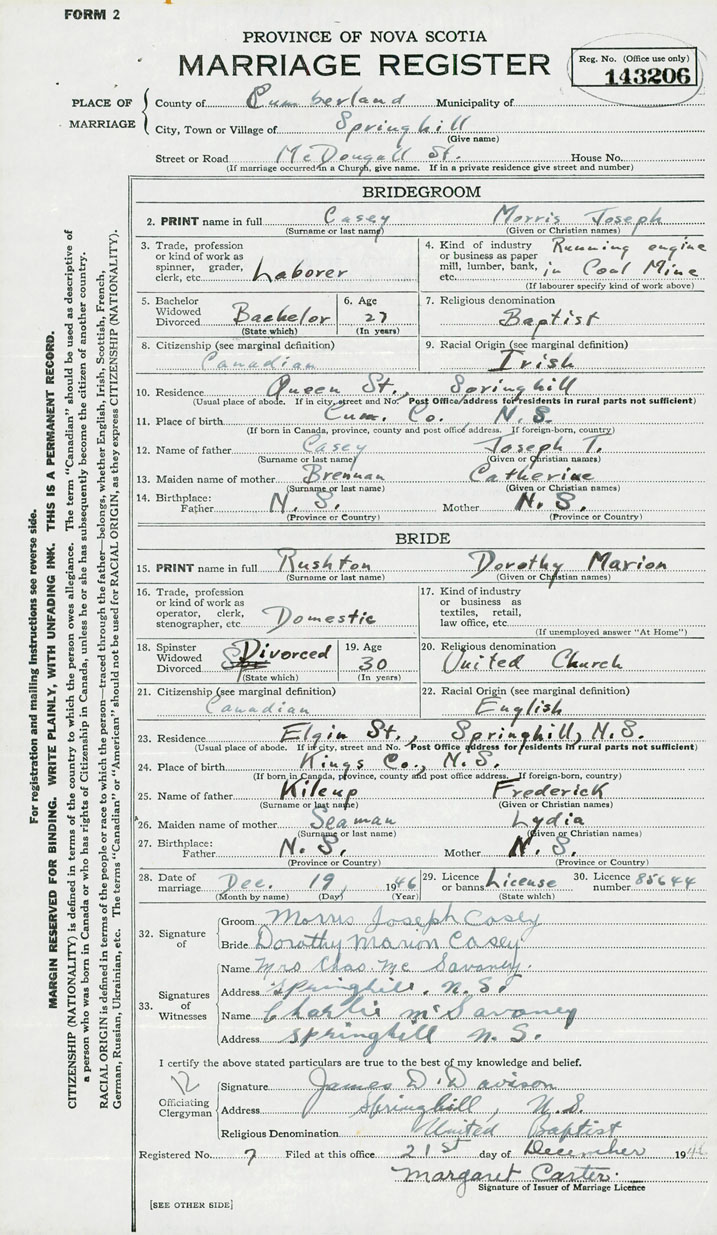 FORM 2
PROVINCE OF NOVA SCOTIA
MARRIAGE REGISTER
Reg. No. (Office use only)
143206
PLACE OF MARRIAGE
County of Cumberland Municipality of
City, Town or Village of Springhill
(Give name)
Street or Road McDougall St. House No.
(If marriage occurred in a Church, give name. If in a private residence give street and number)
BRIDEGROOM
2. PRINT name in full Casey Morris Joseph
(Surname or last name) (Given or Christian names)
3. Trade, profession or kind of work as spinner, grader, clerk, etc. Laborer
4. Kind of industry or business as paper mill, lumber, bank, etc. Running engine in Coal Mine
(If labourer specify kind of work above)
5. Bachelor Widowed Divorced Bachelor
(State which)
6. Age 27
(In years)
7. Religious denomination
Baptist
8. Citizenship (see marginal definition)
Canadian
9. Racial Origin (see marginal definition)
Irish
10. Residence Queen St., Springhill
(Usual place of abode. If in city, street and No. Post Office address for residents in rural parts not sufficient)
11. Place of birth Cum. Co. N. S.
(If born in Canada, province, county and post office address. If foreign-born, country)
12. Name of father Casey Joseph T.
(Surname or last name) (Given or Christian names)
13. Maiden name of mother Brennan Catherine
(Surname or last name) (Given or Christian names)
14. Birthplace: Father N. S. Mother N. S.
(Province or Country) (Province or Country)
BRIDE
15. PRINT name in full Rushton Dorothy Marion
(Surname or last name) (Given or Christian names)
16. Trade, profession or kind of work as operator, clerk, stenographer, etc. Domestic
17. Kind of industry or business as textiles, retail, law office, etc.
(If unemployed answer "At Home")
18. Spinster Widowed Divorced Divorced
(State which)
19. Age 30
(In years)
20. Religious denomination
United Church
21. Citizenship (see marginal definition)
Canadian
22. Racial Origin (see marginal definition)
English
23. Residence Elgin St., Springhill, N.S.
(Usual place of abode. If in city, street and No. Post Office address for residents in rural parts not sufficient)
24. Place of birth Kings Co., N.S.
(If born in Canada, province, county and post office address. If foreign-born, country)
25. Name of father Kileup Frederick
(Surname or last name) (Given or Christian names)
26. Maiden name of mother Seaman Lydia
(Surname or last name) (Given or Christian names)
27. Birthplace: Father N. S. Mother N. S.
(Province or Country) (Province or Country)
28. Date of marriage Dec. 19, 1946
(Month by name) (Day) (Year)
29. Licence or banns License
(State which)
30. Licence number 85644
32. Signature of
Groom Morris Joseph Casey
Bride Dorothy Marion Casey
33. Signatures of Witnesses
Name Mrs Chas. Mc Savaney.
Address Springhill. N. S.
Name Charlie McSavaney
Address Springhill N. S.
I certify the above stated particulars are true to the best of my knowledge and belief.
Officiating Clergyman
Signature James D. Davison
Address Springhill, N.S.
Religious Denomination United Baptist
Registered No. 7 Filed at this office 21st day of December 1946
Margaret Carter.
Signature of Issuer of Marriage Licence
[SEE OTHER SIDE]
For registration and mailing instructions see reverse side.
MARGIN RESERVED FOR BINDING. WRITE PLAINLY, WITH UNFADING INK. THIS IS A PERMANENT RECORD.
CITIZENSHIP (NATIONALITY) is defined in terms of the country to which the person owes allegiance. The term "Canadian" should be used as descriptive of
a person who was born in Canada or who has rights of Citizenship in Canada, unless he or she has subsequently become the citizen of another country.
RACIAL ORIGIN is defined in terms of the people or race to which the person—traced through the father—belongs, whether English, Irish, Scottish, French,
German, Russian, Ukrainian, etc. The terms "Canadian" or "American" should not be used for RACIAL ORIGIN, as they express CITIZENSHIP (NATIONALITY).